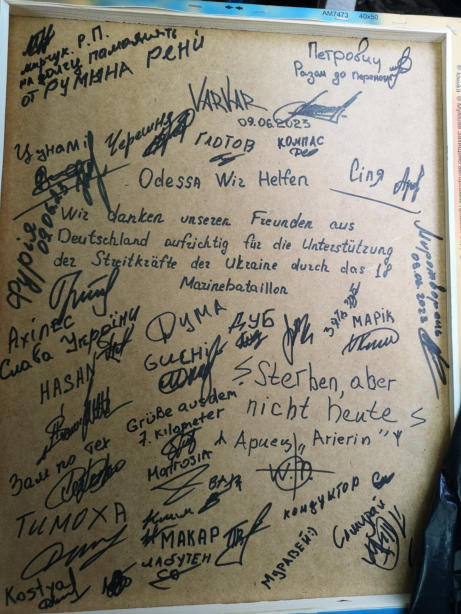 AM7473 40x50
Р.П.
ОТ РУМЫНА РЕНИ
Петровичу
Разом до перемоги
VARVAR
09.06.2023
Цунамі
Черешня
ГЛОТОВ
КОМПАС
Odessa Wir Helfen
Сіля
Фурія
09.06.23
Wir danken unseren Freunden aus
Deutschland aufrichtig für die Unterstützung
der Streitkräfte der Ukraine durch das 18
Marinebataillon
Миротворець
09.06.2023
Ахілес
Слава Україні
ДУМА
ДУБ
МАРІК
HASAN
GUCHI
Sterben, aber
nicht heute
Grüße aus dem
7. kilometer
Зам по тех
Matrosia
Ариец „Arierin"
W.P.
ТИМОХА
Клим
МАКАР
ЛАБУТЕН
КОНДУКТОР
МУРАВЕЙ:)
Самурай
Kostya